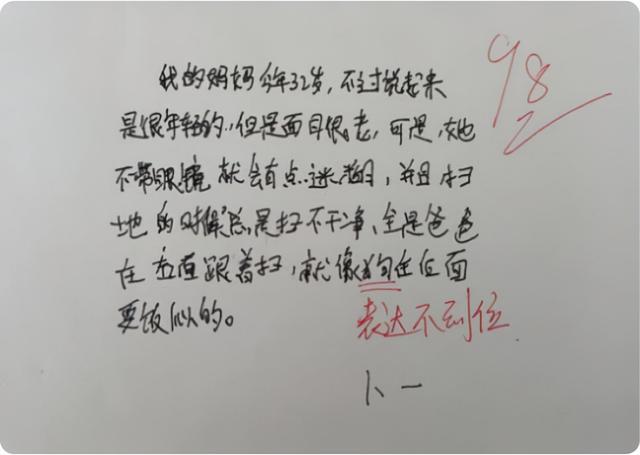 我的妈妈今年32岁，不过说起来
是很年轻的，但是面目很老，可是，她
不带眼镜就会有点迷糊，并且扫
地的时候总是扫不干净，全是爸爸
在后面跟着扫，就像狗在后面
要饭似的。
98
表达不到位